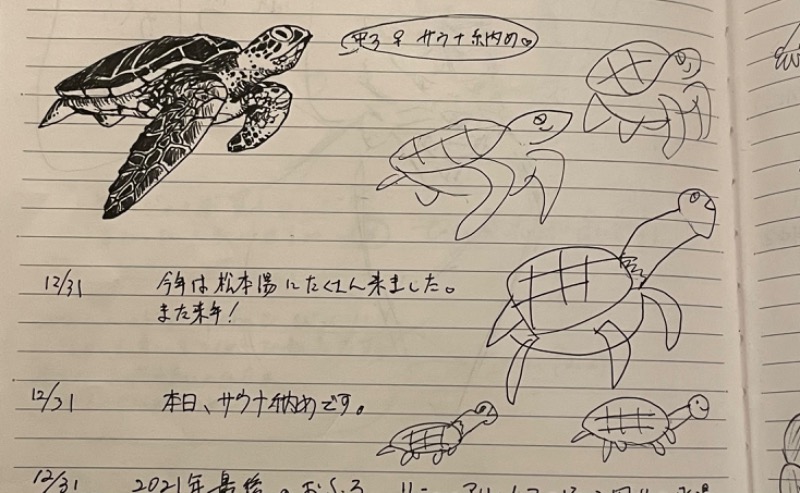 サウナ納め。
12/31 今年は松本湯にたくさん来ました。
また来年!
12/31 本日、サウナ納めです。
12/31 2021年最後。